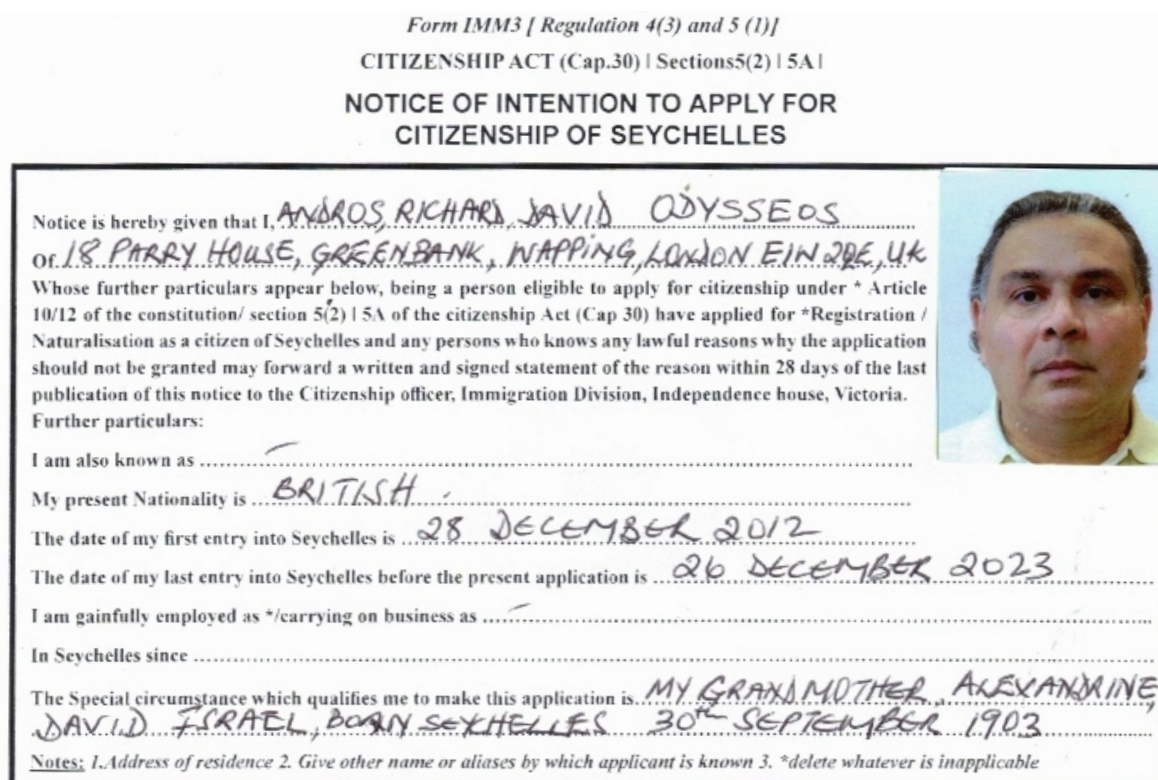 Form IMM3 [ Regulation 4(3) and 5 (1)]
CITIZENSHIP ACT (Cap.30) | Sections5(2) | 5A |
NOTICE OF INTENTION TO APPLY FOR
CITIZENSHIP OF SEYCHELLES
Notice is hereby given that I, ANDROS, RICHARD, DAVID ODYSSEOS
Of 18 PARRY HOUSE, GREENBANK, WAPPING, LONDON E1W 2QE, UK
Whose further particulars appear below, being a person eligible to apply for citizenship under * Article
10/12 of the constitution/ section 5(2) | 5A of the citizenship Act (Cap 30) have applied for *Registration /
Naturalisation as a citizen of Seychelles and any persons who knows any lawful reasons why the application
should not be granted may forward a written and signed statement of the reason within 28 days of the last
publication of this notice to the Citizenship officer, Immigration Division, Independence house, Victoria.
Further particulars:
I am also known as
My present Nationality is BRITISH
The date of my first entry into Seychelles is 28 DECEMBER 2012
The date of my last entry into Seychelles before the present application is 26 DECEMBER 2023
I am gainfully employed as */carrying on business as
In Seychelles since
The Special circumstance which qualifies me to make this application is MY GRANDMOTHER, ALEXANDRINE,
DAVID ISRAEL, BORN SEYCHELLES 30th SEPTEMBER 1903
Notes: 1.Address of residence 2. Give other name or aliases by which applicant is known 3. *delete whatever is inapplicable